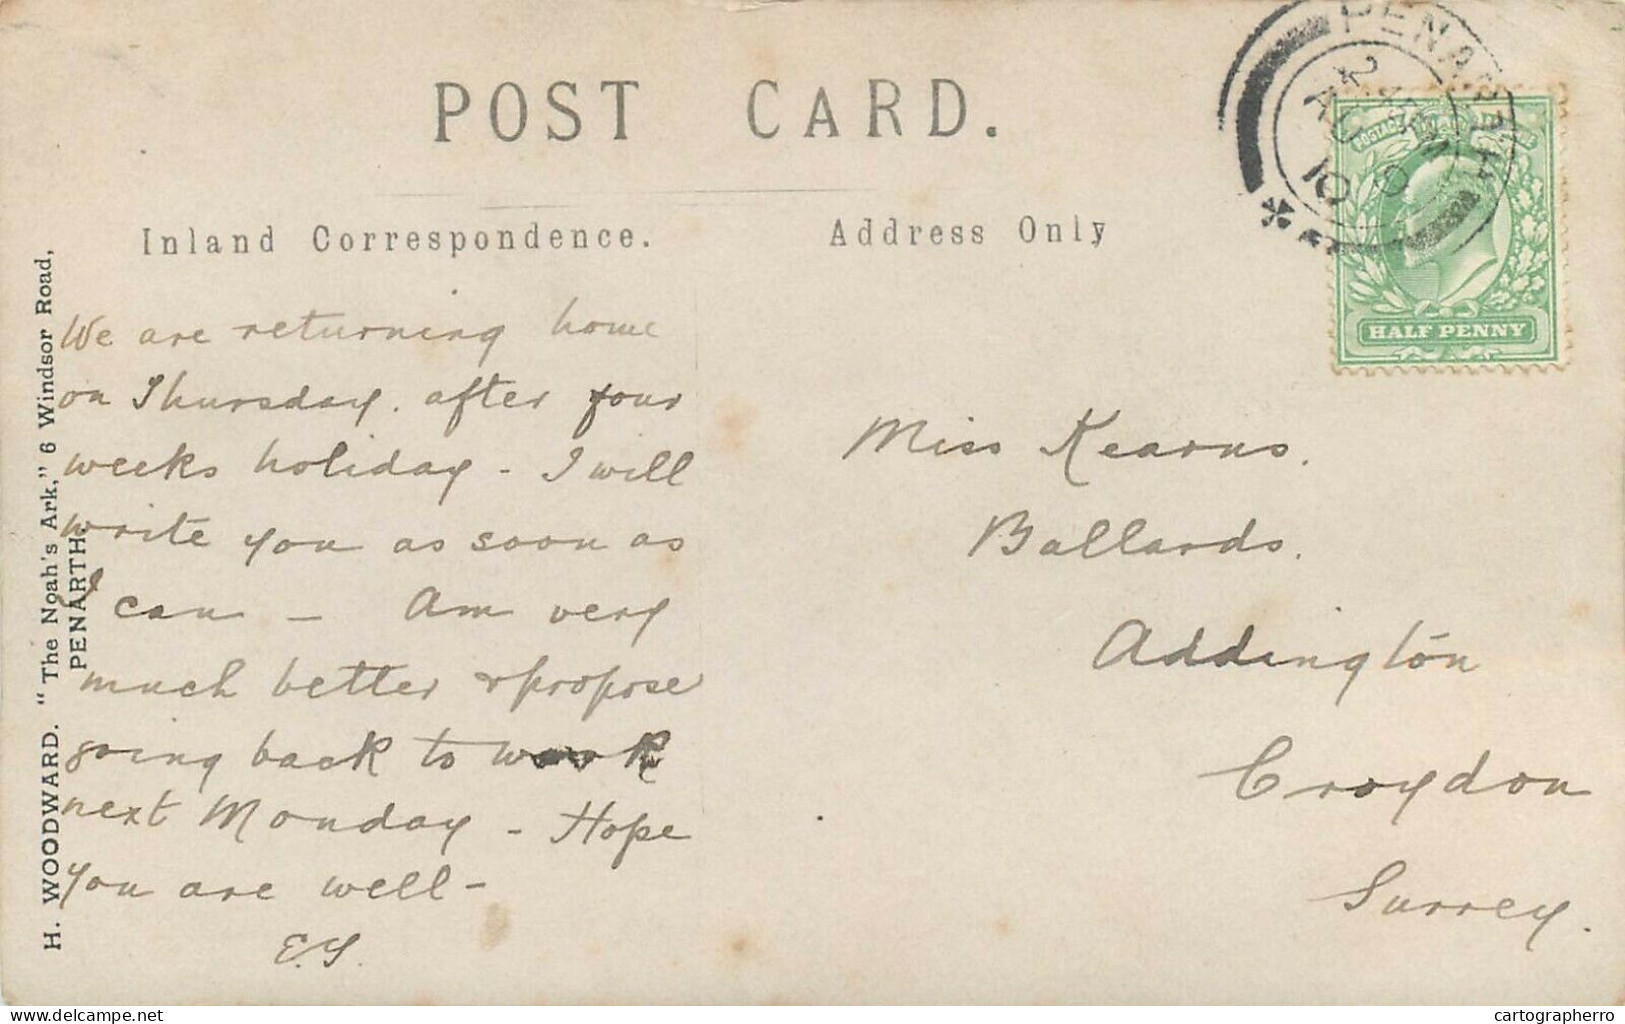 POST CARD.
Inland Correspondence.
Address Only
PENARTH
AU
10
HALF PENNY
H. WOODWARD. "The Noah's Ark," 6 Windsor Road,
PENARTH.
We are returning home
on Thursday. after four
weeks holiday - I will
write you as soon as
I can - Am very
much better & propose
going back to work
next Monday - Hope
you are well -
E.S.
Miss Kearns.
Ballards.
Addington
Croydon
Surrey.
delcampe.net
cartographerro